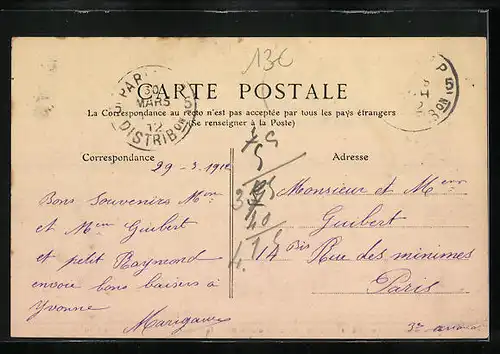 13C
PARIS
30
MARS
5
5
12
DISTRIBON
P
5
CARTE POSTALE
La Correspondance au recto n'est pas acceptée par tous les pays étrangers
(Se renseigner à la Poste)
Correspondance
29-3.1912
Bons Souvenirs Mr
et Mme Guibert
et petit Raymond
envoie bons baisers à
Yvonne
Adresse
Monsieur et Mme
Guibert
14 Bis Rue des minimes
Paris